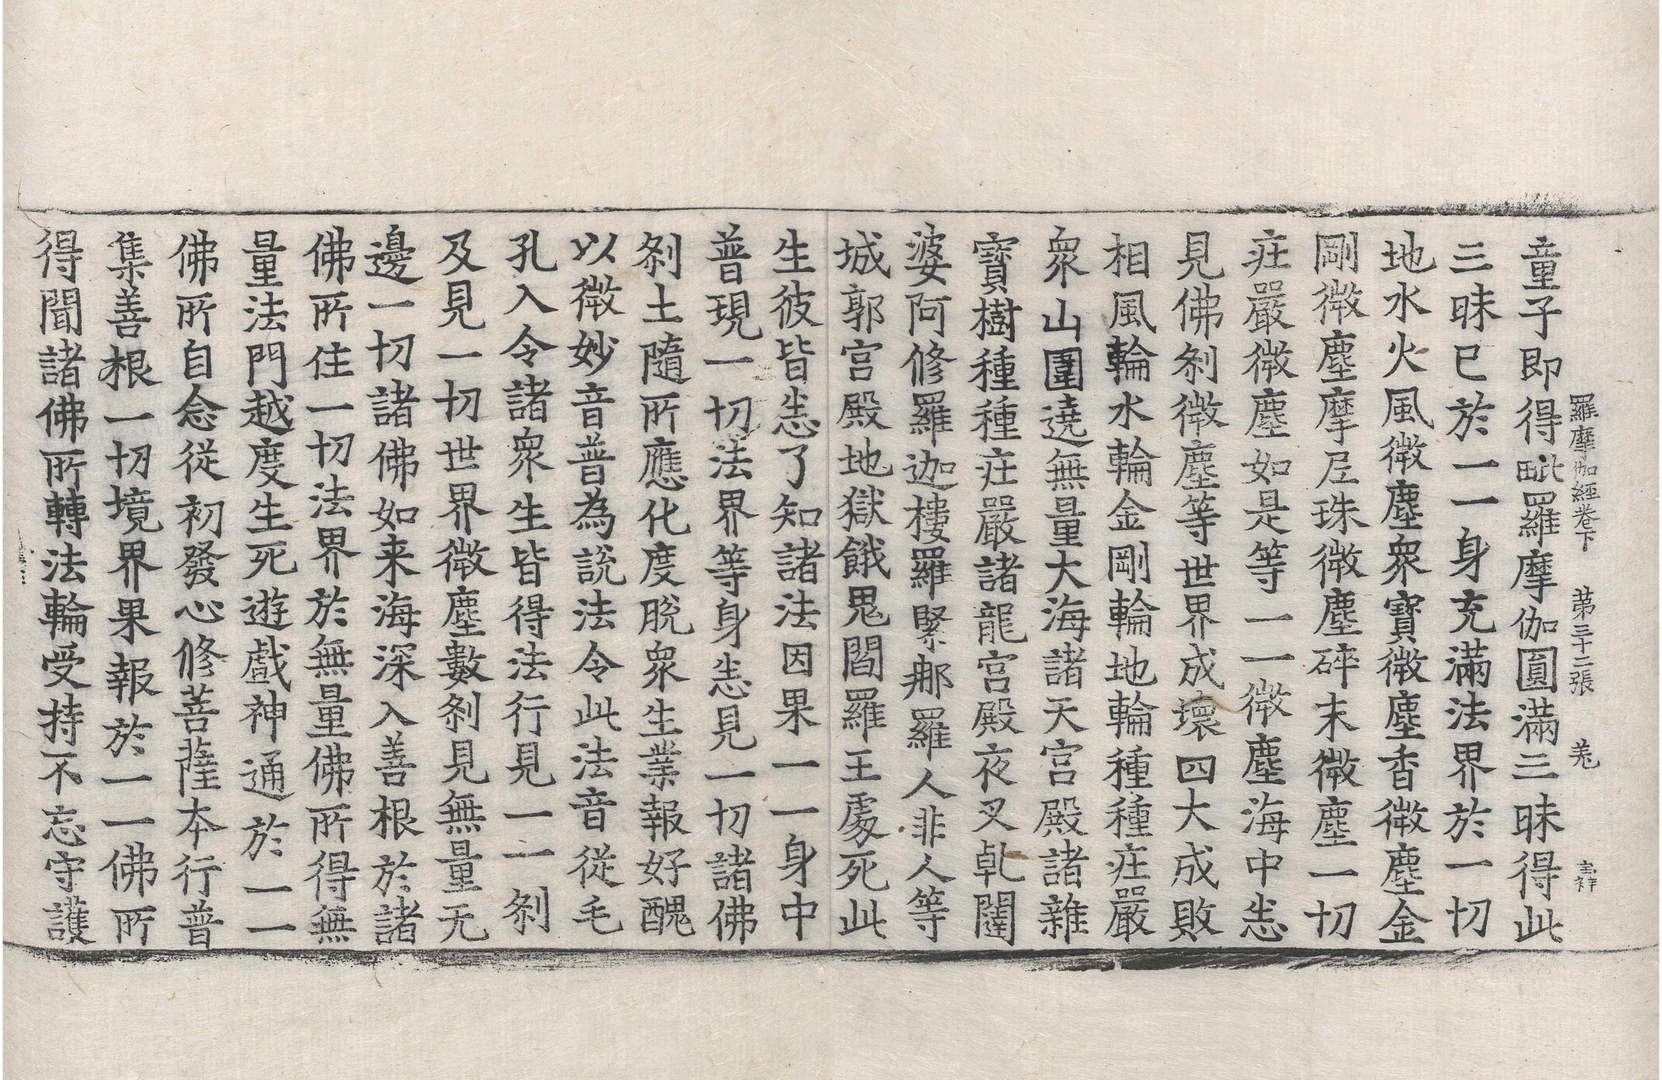 羅摩伽經卷下 第三十二張 㳟
童子即得毗羅摩伽圓滿三昧得此
三昧已於一一身充滿法界於一切
地水火風微塵衆寶微塵香微塵金
剛微塵摩尼珠微塵碎末微塵一切
莊嚴微塵如是等一一微塵海中悉
見佛刹微塵等世界成壞四大成敗
相風輪水輪金剛輪地輪種種莊嚴
衆山圍遶無量大海諸天宮殿諸雜
寶樹種種莊嚴諸龍宮殿夜叉乹闥
婆阿修羅迦樓羅緊那羅人非人等
城郭宮殿地獄餓鬼閻羅王處死此
生彼皆悉了知諸法因果一一身中
普現一切法界等身悉見一切諸佛
刹土隨所應化度脫衆生業報好醜
以微妙音普為說法令此法音從毛
孔入令諸衆生皆得法行見一一刹
及見一切世界微塵數刹見無量无
邊一切諸佛如来海深入善根於諸
佛所住一切法界於無量佛所得無
量法門越度生死遊戲神通於一一
佛所自念從初發心修菩薩本行普
集善根一切境界果報於一一佛所
得聞諸佛所轉法輪受持不忘守護